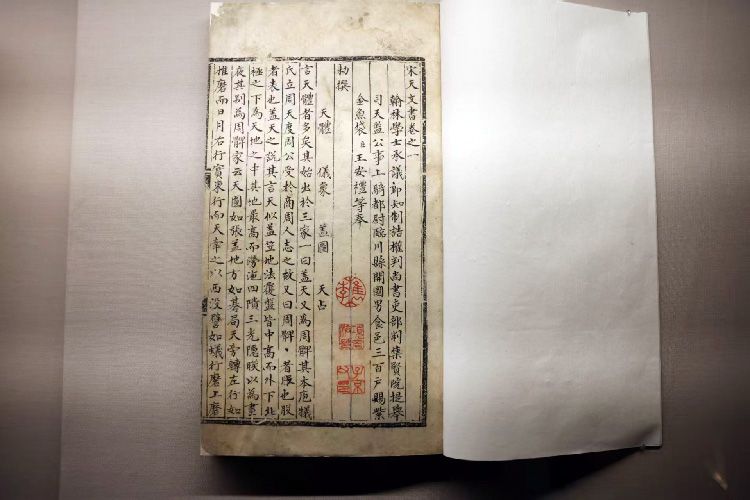 宋天文書卷之一
翰林學士承議郎知制誥權判尚書吏部判集賢院提舉
司天監公事上騎都尉臨川縣開國男食邑三百戶賜紫
金魚袋臣王安禮等奉
勑撰
天體 儀象 蓋圖 天占
言天體者多矣其始出於三家一曰蓋天又為周髀其本庖犧
氏立周天度周公受於商周人志之故又曰周髀〻者股也股
者表也蓋天之說其言天似蓋笠地法覆盤皆中高而外下北
極之下為天地之中其地最高而滂沲四隤三光隱映以為晝
夜其別為周髀家云天圓如張蓋地方如棊局天旁轉左行如
推磨而日月右行實東行而天牽之以西沒譬如蟻行磨上磨